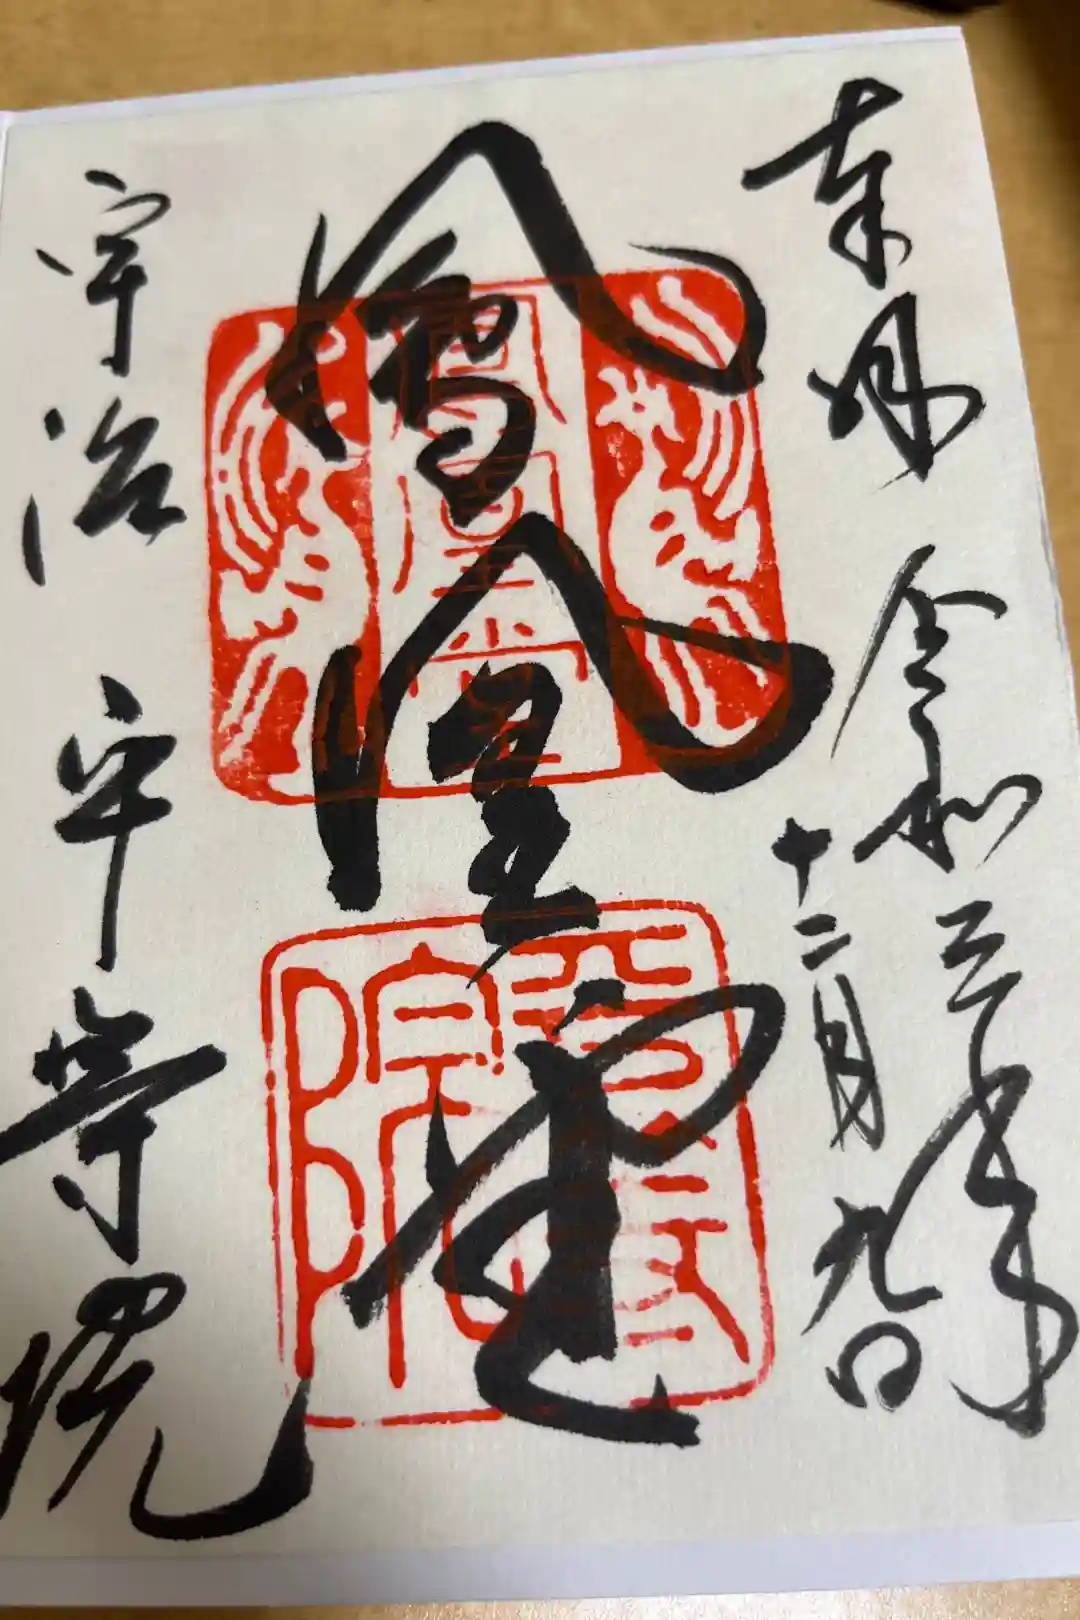 奉拝 令和三年
十二月九日
鳳凰堂
鳳凰堂
平等院
宇治 平等院